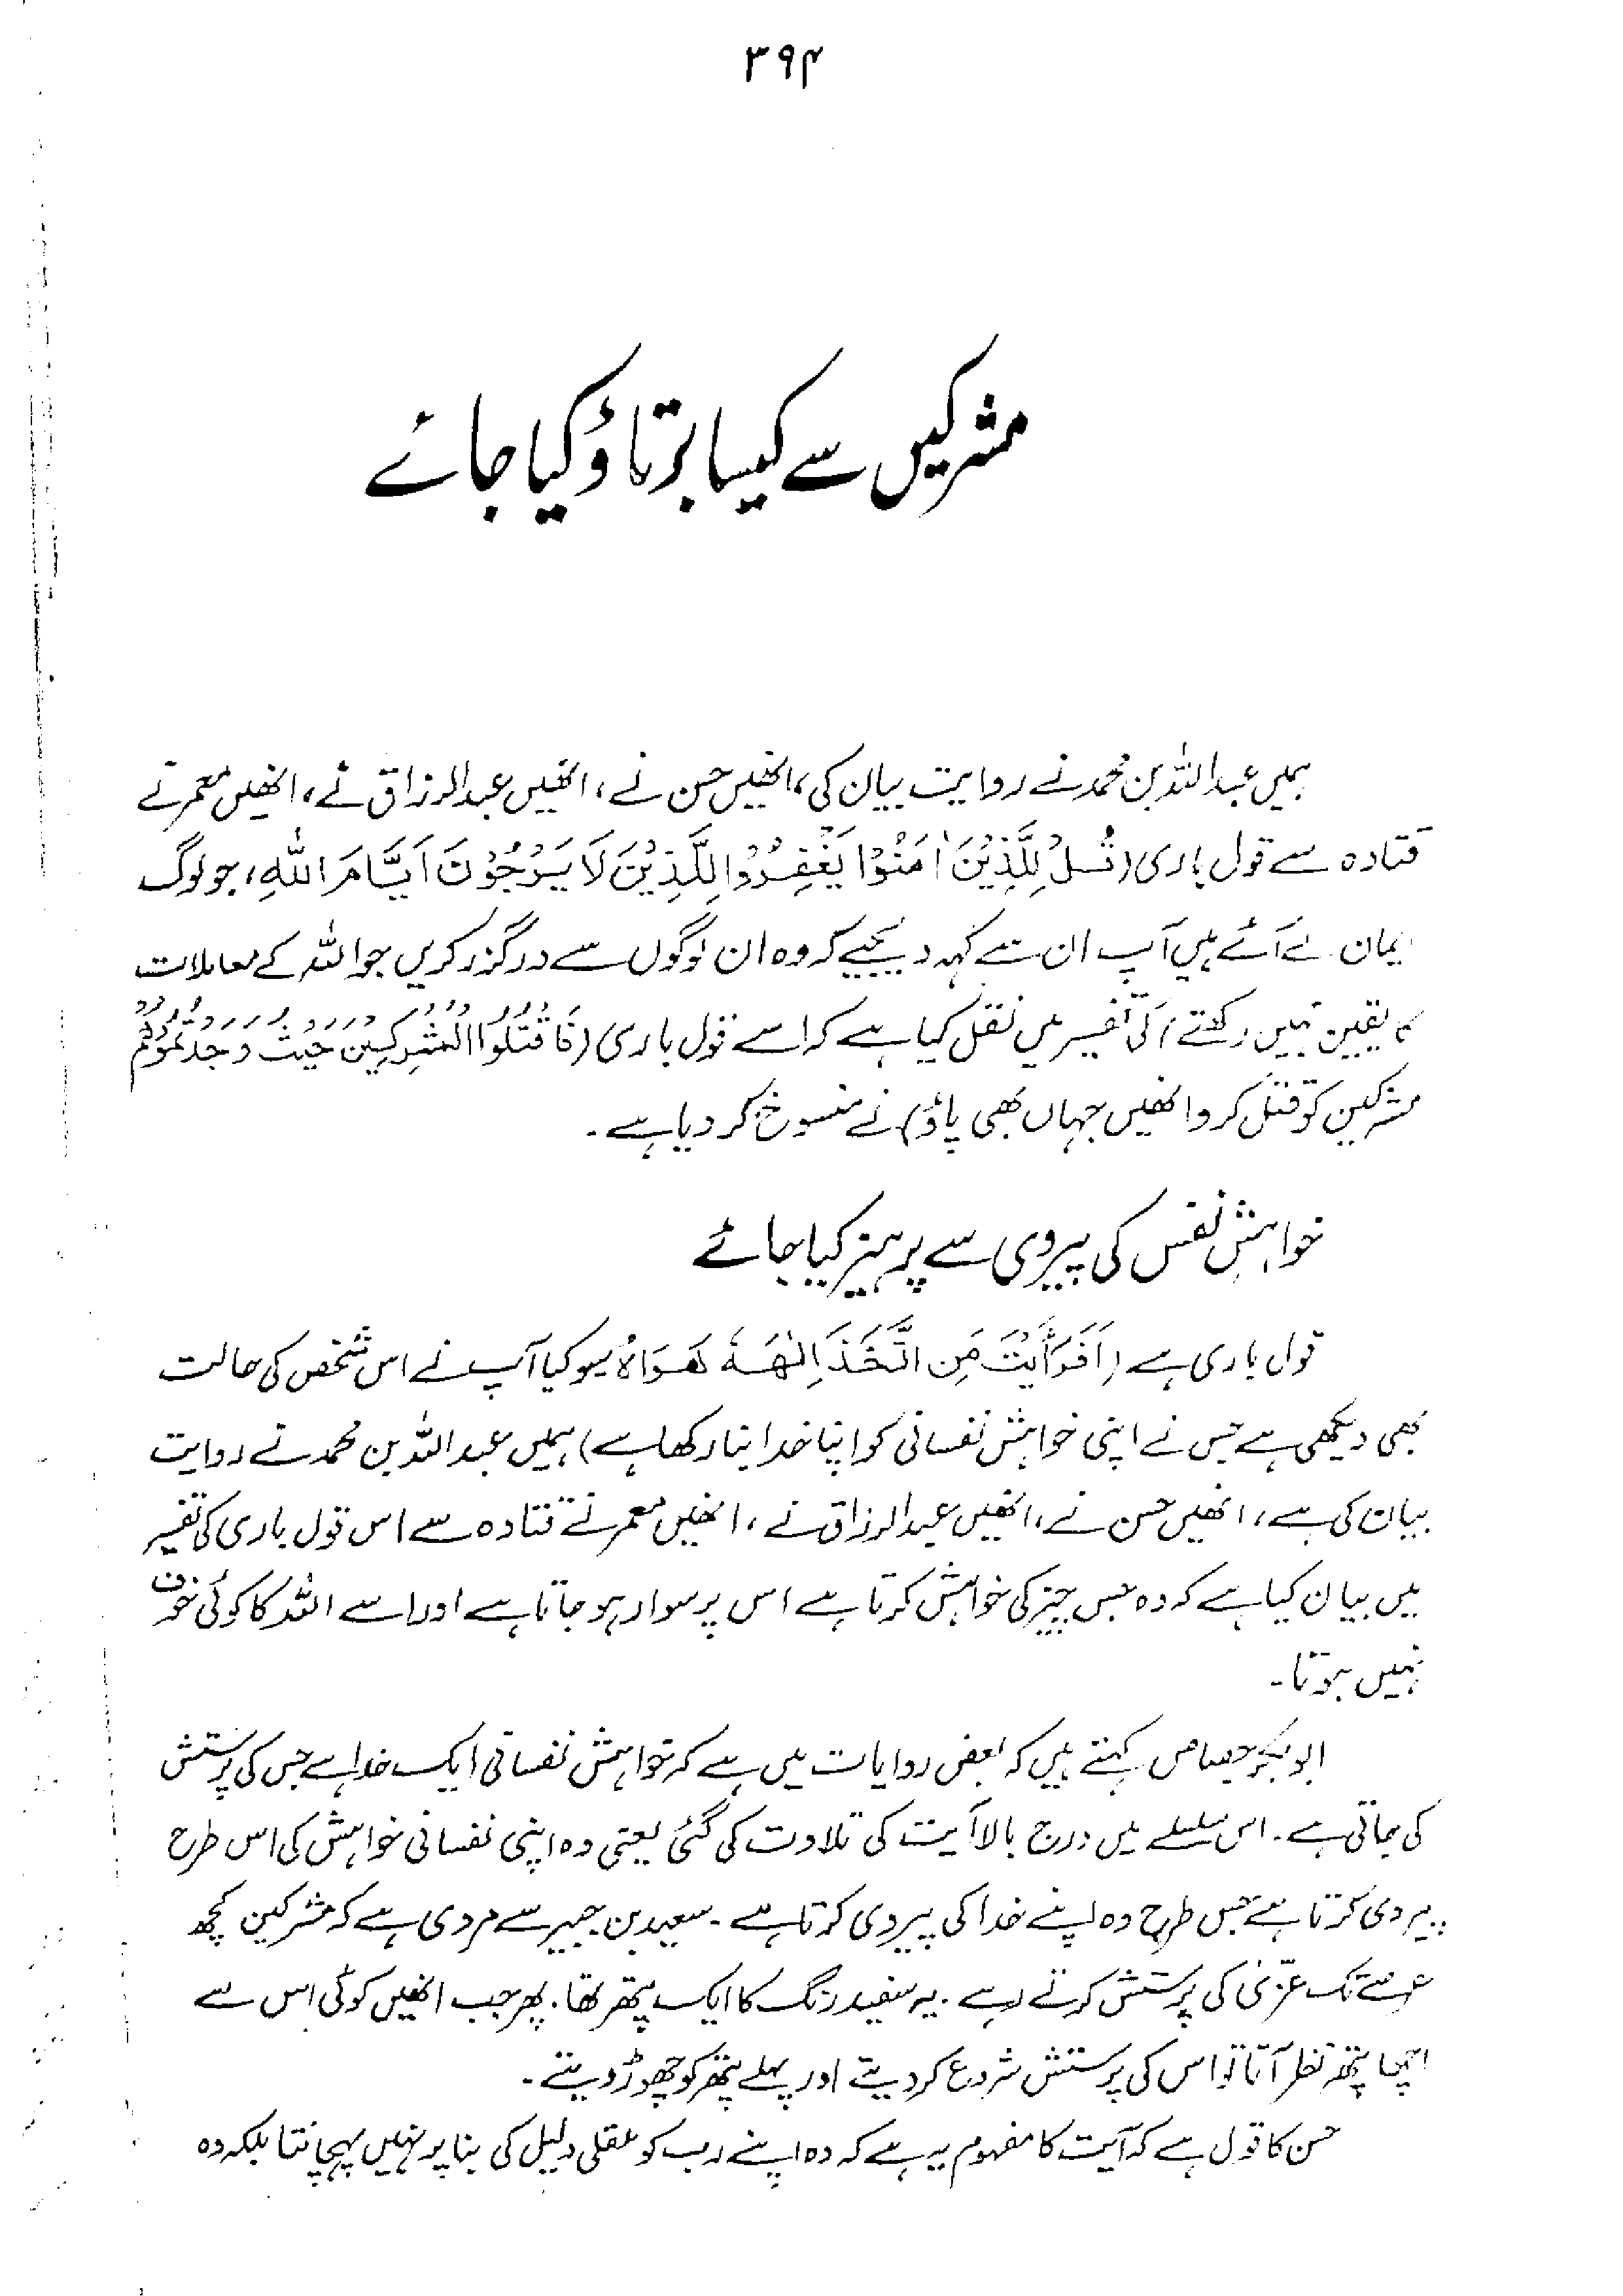 ۳۹۴
مشرکین سے کیسا برتاؤ کیا جائے
ہمیں عبداللہ بن محمد نے روایت بیان کی، انھیں حسن نے، انھیں عبدالرزاق نے، انھیں معمر نے
قتادہ سے قول باری (قُلْ لِلَّذِیْنَ اٰمَنُوْا یَغْفِرُوْا لِلَّذِیْنَ لَا یَرْجُوْنَ اَیَّامَ اللّٰهِ، جو لوگ
ایمان لے آئے ہیں آپ ان سے کہہ دیجیے کہ وہ ان لوگوں سے درگزر کریں جو اللہ کے معاملات
کا یقین نہیں رکھتے) کی تفسیر میں نقل کیا ہے کہ اسے قول باری (فَاقْتُلُوا الْمُشْرِكِیْنَ حَیْثُ وَجَدْتُّمُوْهُمْ
مشرکین کو قتل کرو انھیں جہاں بھی پاؤ) نے منسوخ کر دیا ہے۔
خواہش نفس کی پیروی سے پرہیز کیا جائے
قول باری ہے (اَفَرَاَیْتَ مَنِ اتَّخَذَ اِلٰهَهٗ هَوَاهُ سو کیا آپ نے اس شخص کی حالت
بھی دیکھی ہے جس نے اپنی خواہش نفسانی کو اپنا خدا بنا رکھا ہے) ہمیں عبداللہ بن محمد نے روایت
بیان کی ہے، انھیں حسن نے، انھیں عبدالرزاق نے، انھیں معمر نے قتادہ سے اس قول باری کی تفسیر
میں بیان کیا ہے کہ وہ جس چیز کی خواہش کرتا ہے اس پر سوار ہو جاتا ہے اور اسے اللہ کا کوئی خوف
نہیں ہوتا۔
ابوبکر جصاص کہتے ہیں کہ بعض روایات میں ہے کہ خواہش نفسانی ایک خدا ہے جس کی پرستش
کی جاتی ہے۔ اس سلسلے میں درج بالا آیت کی تلاوت کی گئی یعنی وہ اپنی نفسانی خواہش کی اس طرح
پیروی کرتا ہے جس طرح وہ اپنے خدا کی پیروی کرتا ہے۔ سعید بن جبیر سے مروی ہے کہ مشرکین کچھ
عرصے تک عزّیٰ کی پرستش کرتے رہے۔ یہ سفید رنگ کا ایک پتھر تھا۔ پھر جب انھیں کوئی اس سے
اچھا پتھر نظر آتا تو اس کی پرستش شروع کر دیتے اور پہلے پتھر کو چھوڑ دیتے۔
حسن کا قول ہے کہ آیت کا مفہوم یہ ہے کہ وہ اپنے رب کو عقلی دلیل کی بنا پر نہیں پہچانتا بلکہ وہ